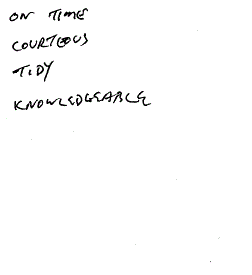 ON TIME
COURTEOUS
TIDY
KNOWLEDGEABLE